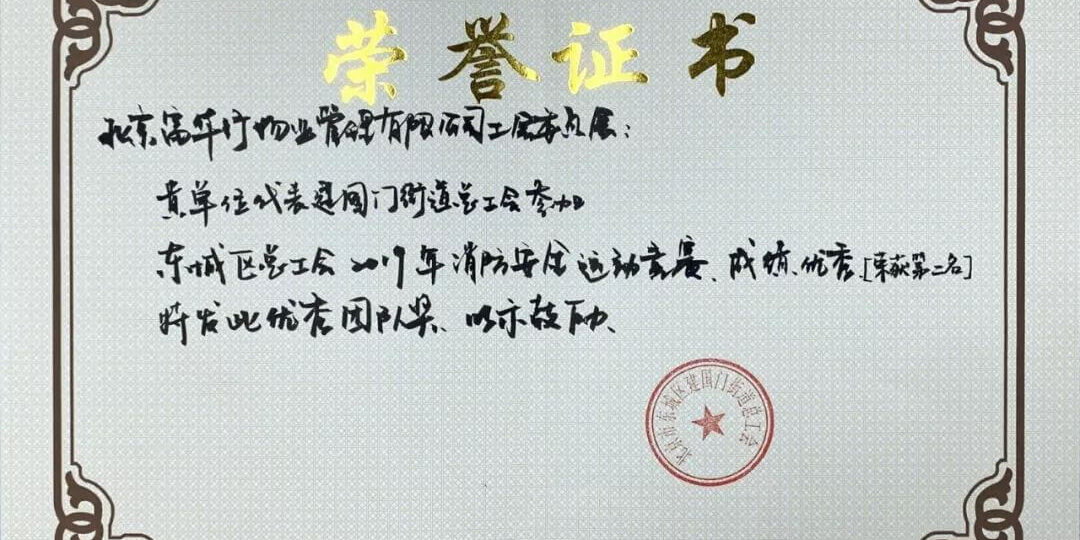 荣誉证书
北京富华行物业管理有限公司工会委员会：
贵单位代表建国门街道总工会参加
东城区总工会2019年消防安全运动竞赛、成绩优秀、[荣获第二名]
特发此优秀团队奖、以示鼓励、
北京市东城区建国门街道总工会